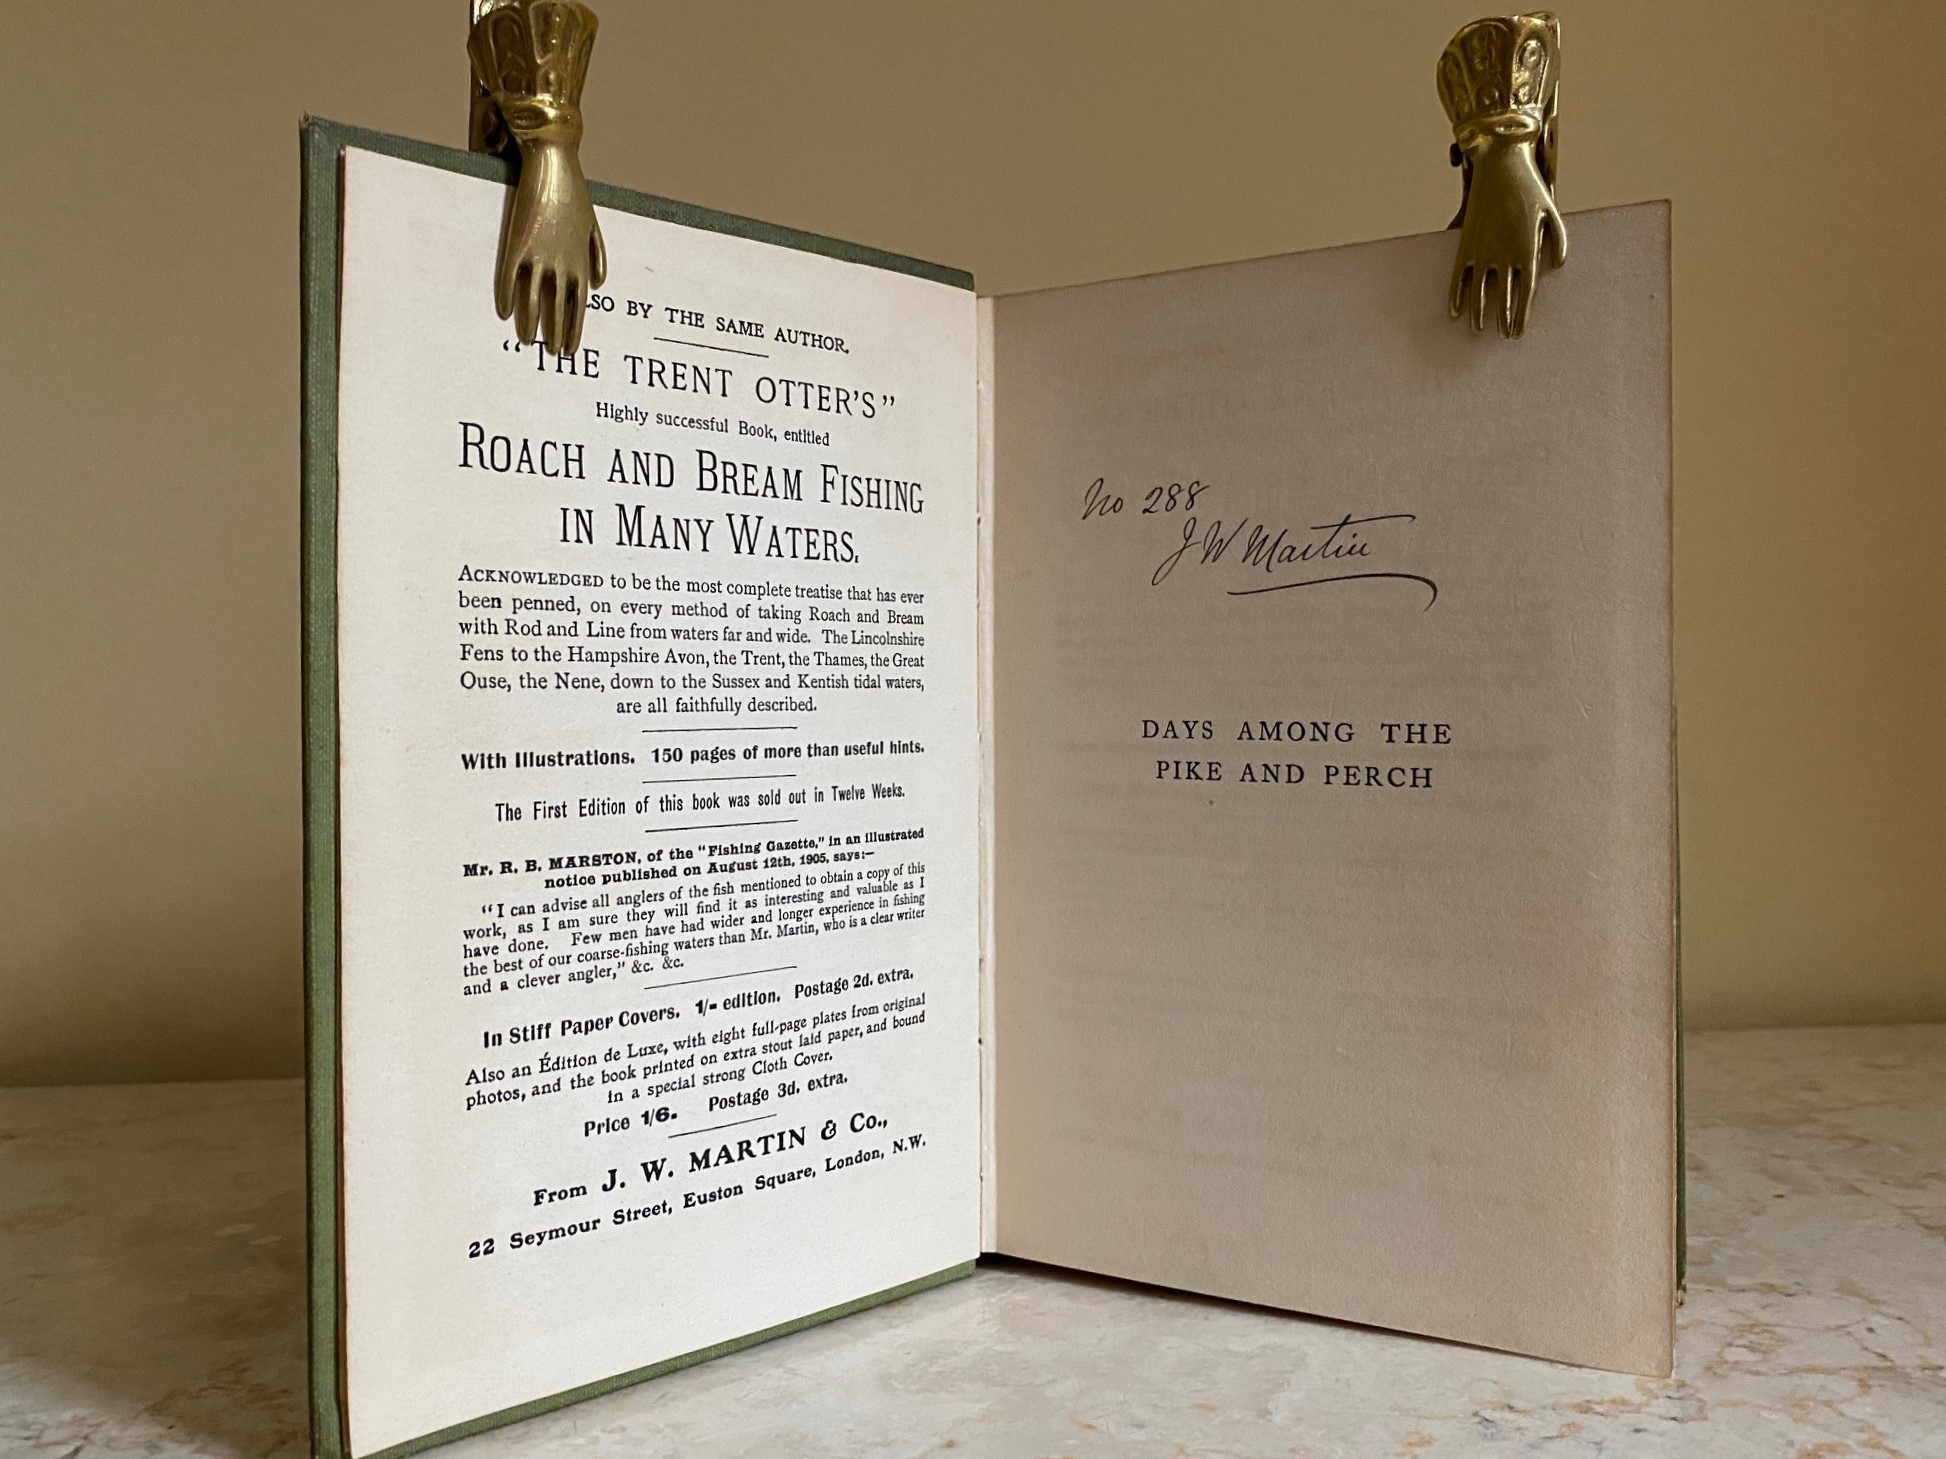 LSO BY THE SAME AUTHOR.
"THE TRENT OTTER'S"
Highly successful Book, entitled
ROACH AND BREAM FISHING
IN MANY WATERS.
ACKNOWLEDGED to be the most complete treatise that has ever
been penned, on every method of taking Roach and Bream
with Rod and Line from waters far and wide. The Lincolnshire
Fens to the Hampshire Avon, the Trent, the Thames, the Great
Ouse, the Nene, down to the Sussex and Kentish tidal waters,
are all faithfully described.
With Illustrations. 150 pages of more than useful hints.
The First Edition of this book was sold out in Twelve Weeks.
Mr. R. B. MARSTON, of the "Fishing Gazette," in an illustrated
notice published on August 12th, 1905, says:—
"I can advise all anglers of the fish mentioned to obtain a copy of this
work, as I am sure they will find it as interesting and valuable as I
have done. Few men have had wider and longer experience in fishing
the best of our coarse-fishing waters than Mr. Martin, who is a clear writer
and a clever angler," &c. &c.
In Stiff Paper Covers. 1/- edition. Postage 2d. extra.
Also an Édition de Luxe, with eight full-page plates from original
photos, and the book printed on extra stout laid paper, and bound
in a special strong Cloth Cover.
Price 1/6. Postage 3d. extra.
From J. W. MARTIN & Co.,
22 Seymour Street, Euston Square, London, N.W.
No 288
J W Martin
DAYS AMONG THE
PIKE AND PERCH